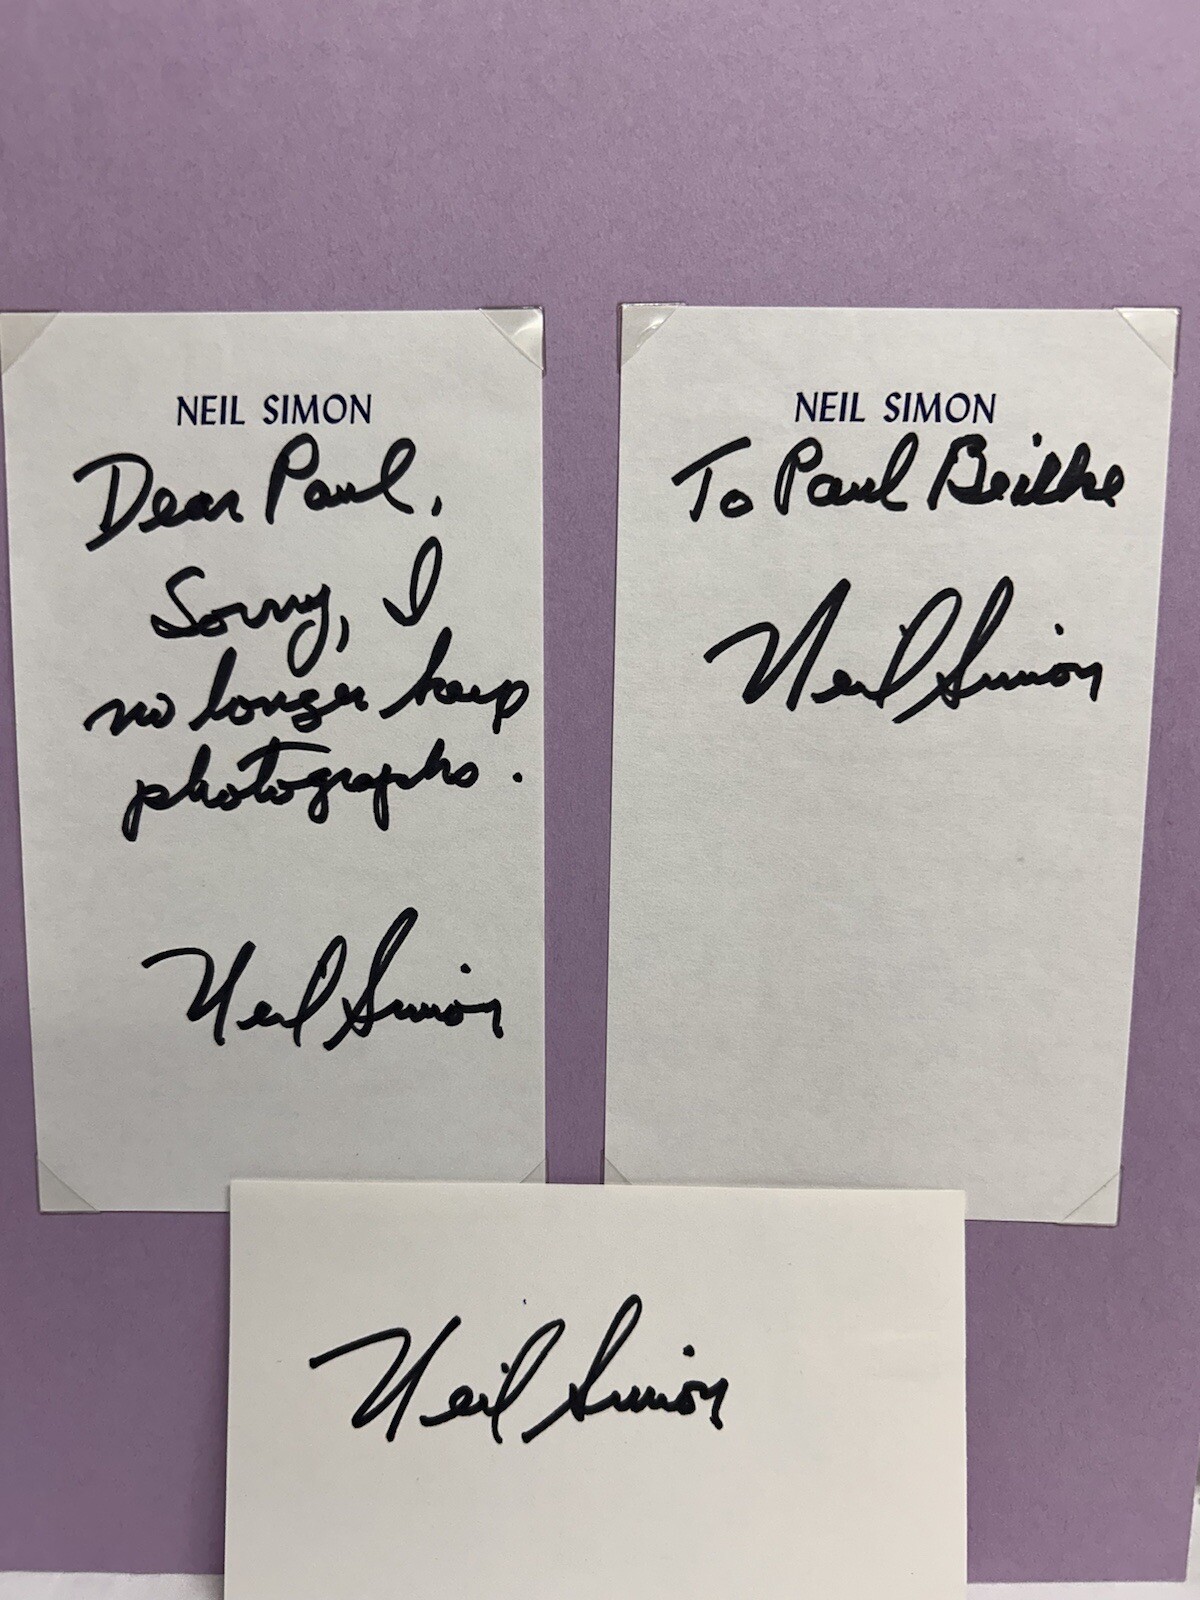 NEIL SIMON
Dear Paul,
Sorry, I
no longer keep
photographs.
Neil Simon
NEIL SIMON
To Paul
Neil Simon
Neil Simon